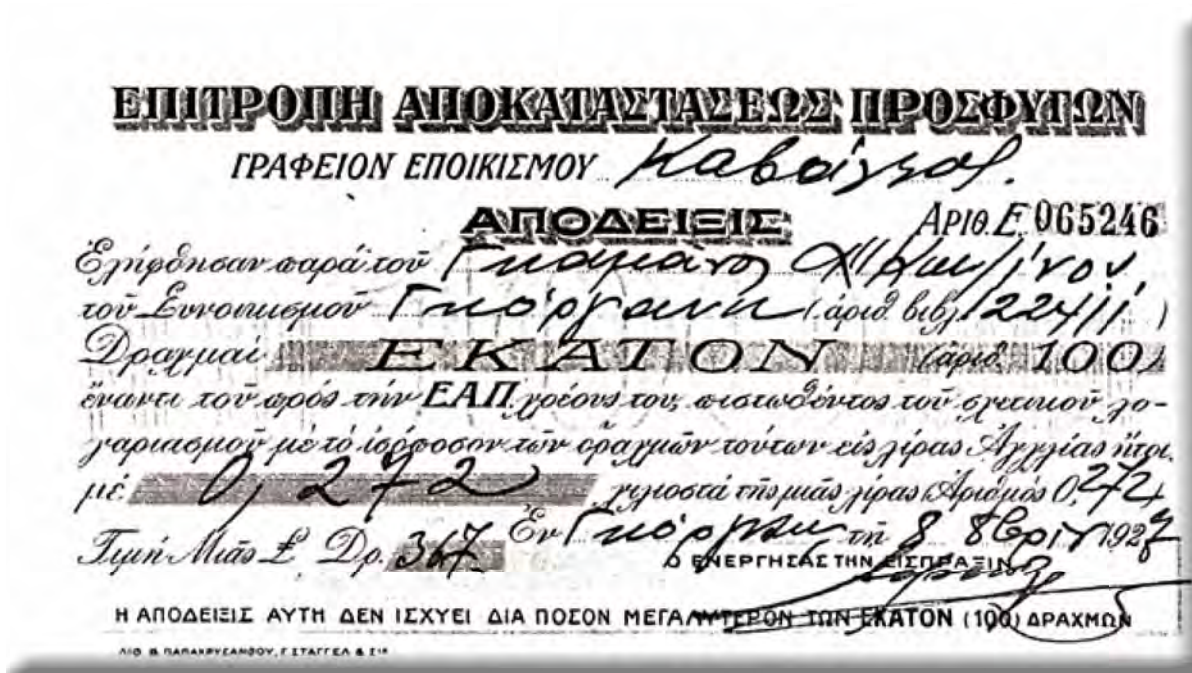 ΕΠΙΤΡΟΠΗ ΑΠΟΚΑΤΑΣΤΑΣΕΩΣ ΠΡΟΣΦΥΓΩΝ
ΓΡΑΦΕΙΟΝ ΕΠΟΙΚΙΣΜΟΥ Καβάλλας.
ΑΠΟΔΕΙΞΙΣ ΑΡΙΘ. Ε. 065246
Ἐλήφθησαν παρὰ τοῦ
τοῦ Συνοικισμοῦ (ἀριθ. βιβλ.
Δραχμαὶ ΕΚΑΤΟΝ (ἀριθ. 100)
ἔναντι τοῦ πρὸς τὴν ΕΑΠ χρέους του, πιστωθέντος τοῦ σχετικοῦ λο-
γαριασμοῦ μὲ τὸ ἰσόποσον τῶν δραχμῶν τούτων εἰς λίρας Ἀγγλίας ἤτοι
μὲ 0,272 χιλιοστὰ τῆς μιᾶς λίρας (Ἀριθμὸς 0,272)
Τιμὴ Μιᾶς £ Δρ. 367 Ἐν τῇ 8 8βρίου 1927
Ο ΕΝΕΡΓΗΣΑΣ ΤΗΝ ΕΙΣΠΡΑΞΙΝ
Η ΑΠΟΔΕΙΞΙΣ ΑΥΤΗ ΔΕΝ ΙΣΧΥΕΙ ΔΙΑ ΠΟΣΟΝ ΜΕΓΑΛΥΤΕΡΟΝ ΤΩΝ ΕΚΑΤΟΝ (100) ΔΡΑΧΜΩΝ